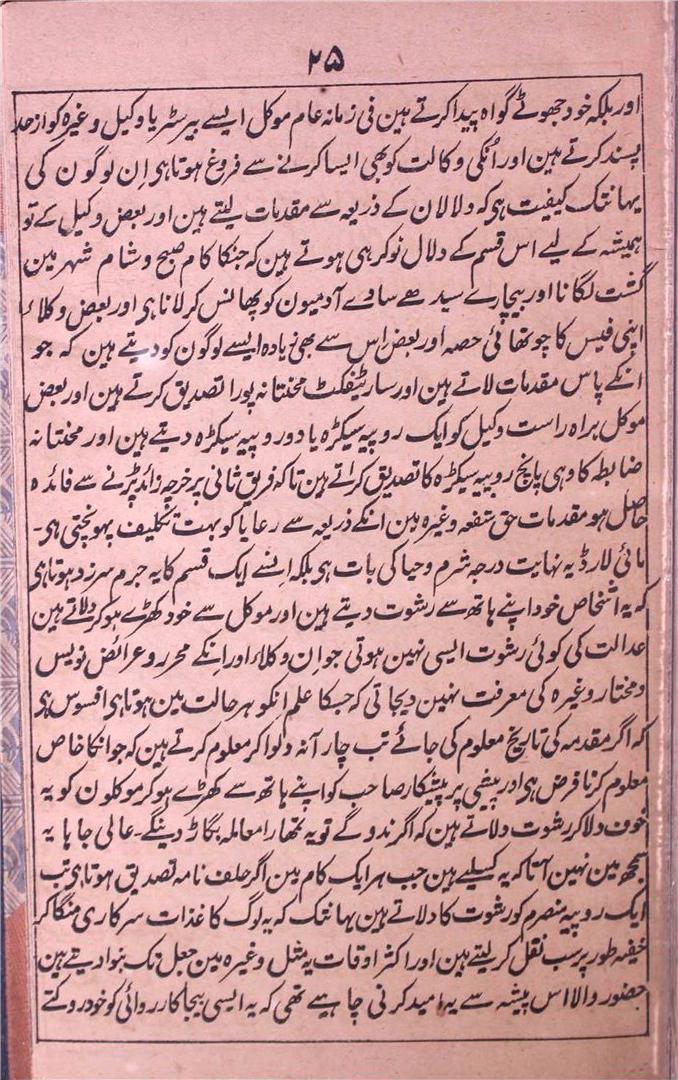 ۲۵
اور بلکہ خود جھوٹے گواہ پیدا کرتے ہین فی زمانہ عام موکل ایسے بیرسٹر یا وکیل وغیرہ کو از حد
پسند کرتے ہین اور اُنکی وکالت کو بھی ایسا کرنے سے فروغ ہوتا ہی اِن لوگون کی
یہانتک کیفیت ہی کہ دلالان کے ذریعہ سے مقدمات لیتے ہین اور بعض وکیل کے تو
ہمیشہ کے لیے اس قسم کے دلال نوکر ہی ہوتے ہین کہ جنکا کام صبح و شام شہر مین
گشت لگانا اور بیچارے سیدھے سادے آدمیون کو پھانس کر لانا ہی اور بعض وکلاء
اپنی فیس کا چوتھائی حصہ اور بعض اس سے بھی زیادہ ایسے لوگون کو دیتے ہین کہ جو
انکے پاس مقدمات لاتے ہین اور سارٹیفکٹ محنتانہ پورا تصدیق کرتے ہین اور بعض
موکل براہ راست وکیل کو ایک روپیہ سیکڑہ یا دو روپیہ سیکڑہ دیتے ہین اور محنتانہ
ضابطہ کا وہی پانچ روپیہ سیکڑہ کا تصدیق کراتے ہین تاکہ فریق ثانی پر خرچہ زائد پڑنے سے فائدہ
حاصل ہو مقدمات حق شفعہ وغیرہ مین انکے ذریعہ سے رعایا کو بہت تکلیف پہونچتی ہی۔
مائی لارڈ یہ نہایت درجہ شرم و حیا کی بات ہی بلکہ اِنسے ایک قسم کا یہ جرم سرزد ہوتا ہی
کہ یہ اشخاص خود اپنے ہاتھ سے رشوت دیتے ہین اور موکل سے خود کھڑے ہو کر دلاتے ہین
عدالت کی کوئی رشوت ایسی نہین ہوتی جو اِن وکلاء اور اِنکے محرر و عرائض نویس
و مختار وغیرہ کی معرفت نہین دیجاتی کہ جسکا علم انکو ہر حالت مین ہوتا ہی افسوس ہی
کہ اگر مقدمہ کی تاریخ معلوم کی جائے تب چار آنہ دلوا کر معلوم کرتے ہین کہ جو انکا خاص
معلوم کرنا فرض ہی اور پیشی پر پیشکار صاحب کو اپنے ہاتھ سے کھڑے ہو کر موکلون کو یہ
خوف دلا کر رشوت دلاتے ہین کہ اگر ندو گے تو یہ تمھارا معاملہ بگاڑ دینگے۔ عالی جاہا یہ
سمجھ مین نہین آتا کہ یہ کسلیے ہین جب ہر ایک کام مین اگر حلف نامہ تصدیق ہوتا ہی تب
ایک روپیہ منصرم کو رشوت کا دلاتے ہین یہانتک کہ یہ لوگ کاغذات سرکاری منگا کر
خفیہ طور پر سب نقل کر لیتے ہین اور اکثر اوقات یہ مثل وغیرہ مین جعل تک بنوا دیتے ہین
حضور والا اس پیشہ سے یہ امید کرنی چاہیے تھی کہ یہ ایسی بیجا کارروائی کو خود روکتے